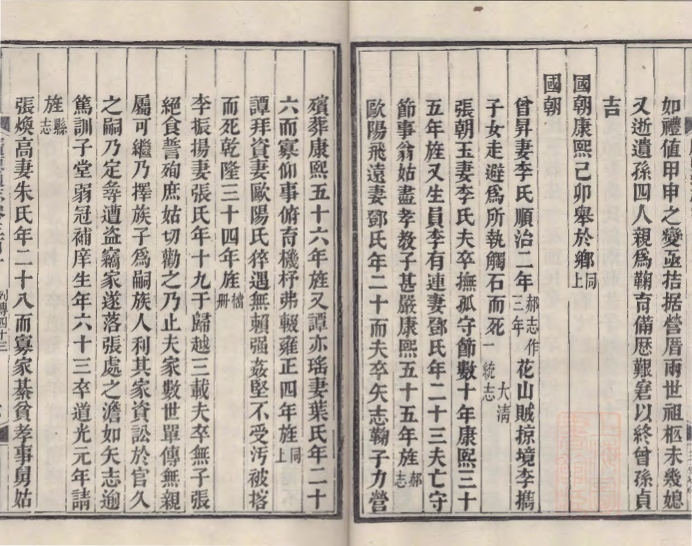 如禮值甲申之變亟拮据營厝兩世祖柩未幾媳
又逝遺孫四人親爲鞠育備歷艱窘以終曾孫貞
吉
國朝康熙己卯舉於鄉同上
國朝
曾昇妻李氏順治二年郝志作三年花山賊掠境李攜
子女走避爲所執觸石而死大清一統志
張朝玉妻李氏夫卒撫孤守節數十年康熙三十
五年旌又生員李有連妻鄧氏年二十三夫亡守
節事翁姑盡孝教子甚嚴康熙五十五年旌郝志
歐陽飛遠妻鄧氏年二十而夫卒矢志鞠子力營
殯葬康熙五十六年旌又譚亦瑤妻葉氏年二十
六而寡仰事俯育機杼弗輟雍正四年旌同上
譚拜資妻歐陽氏猝遇無賴强姦堅不受汚被撘
而死乾隆三十四年旌檔冊
李振揚妻張氏年十九于歸越三載夫卒無子張
絕食誓殉庶姑切勸之乃止夫家數世單傳無親
屬可繼乃擇族子爲嗣族人利其家資訟於官久
之嗣乃定尋遭盜竊家遂落張處之澹如矢志逾
篤訓子堂弱冠補庠生年六十三卒道光元年請
旌縣志
張煥高妻朱氏年二十八而寡家綦貧孝事舅姑
列傳四十三